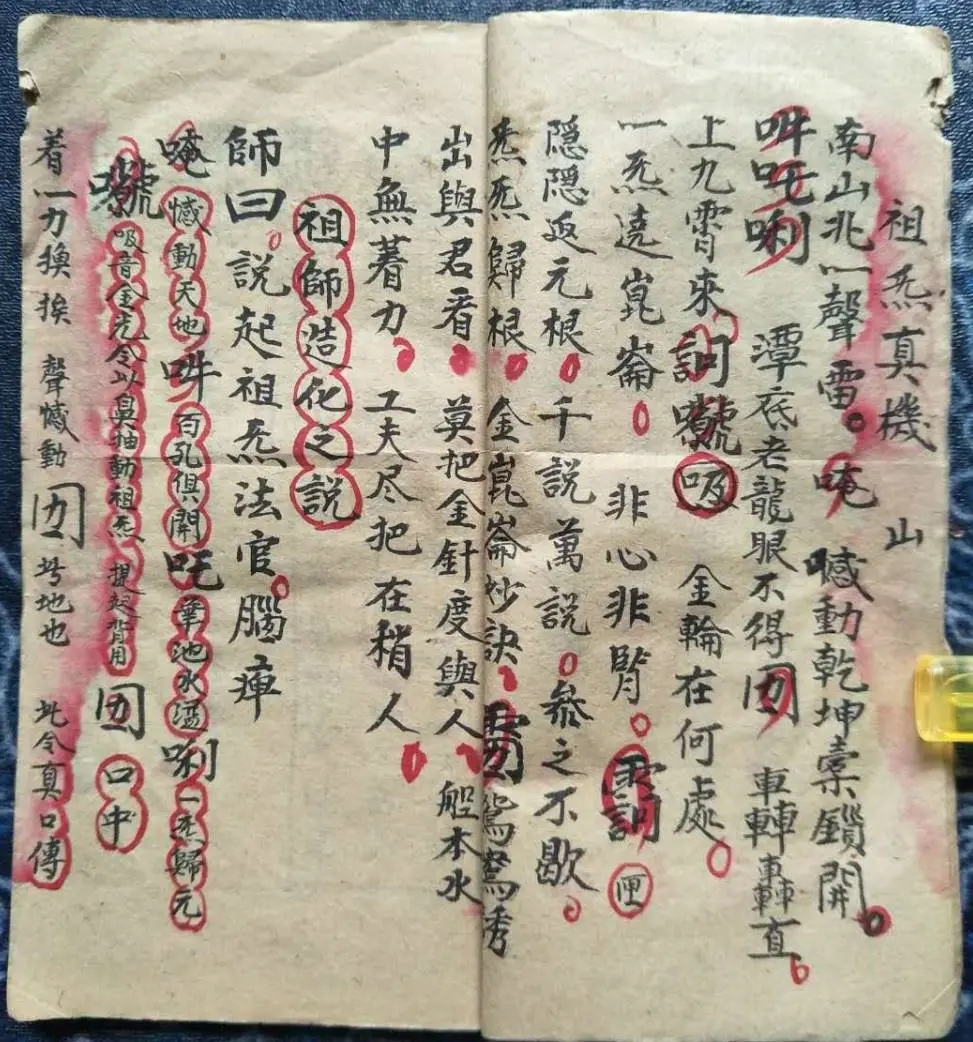 祖炁真機 山
南山兆一聲雷 唵 憾動乾坤橐鎖開
吽吒唎 潭底老龍眼不得囝 車轉轟直
上九霄來 訶 吸 金輪在何處
一炁遶崑崙 非心非腎 匣
隱隱返元根 千說萬說 叅之不歇
炁炁歸根 金崑崙妙訣 鴛鴦秀
出與君看 莫把金針度與人 船本水
中無著力 工夫尽把在稍人
祖師造化之說
師曰說起祖炁法官腦痺
唵 憾動天地 吽 百孔俱開 吒 華池水滿 唎 一炁歸元
吸音金光令以鼻抽動祖炁 提起背用 囝 口中
着一力換挨 聲憾動 囝 地也 此令真口傳